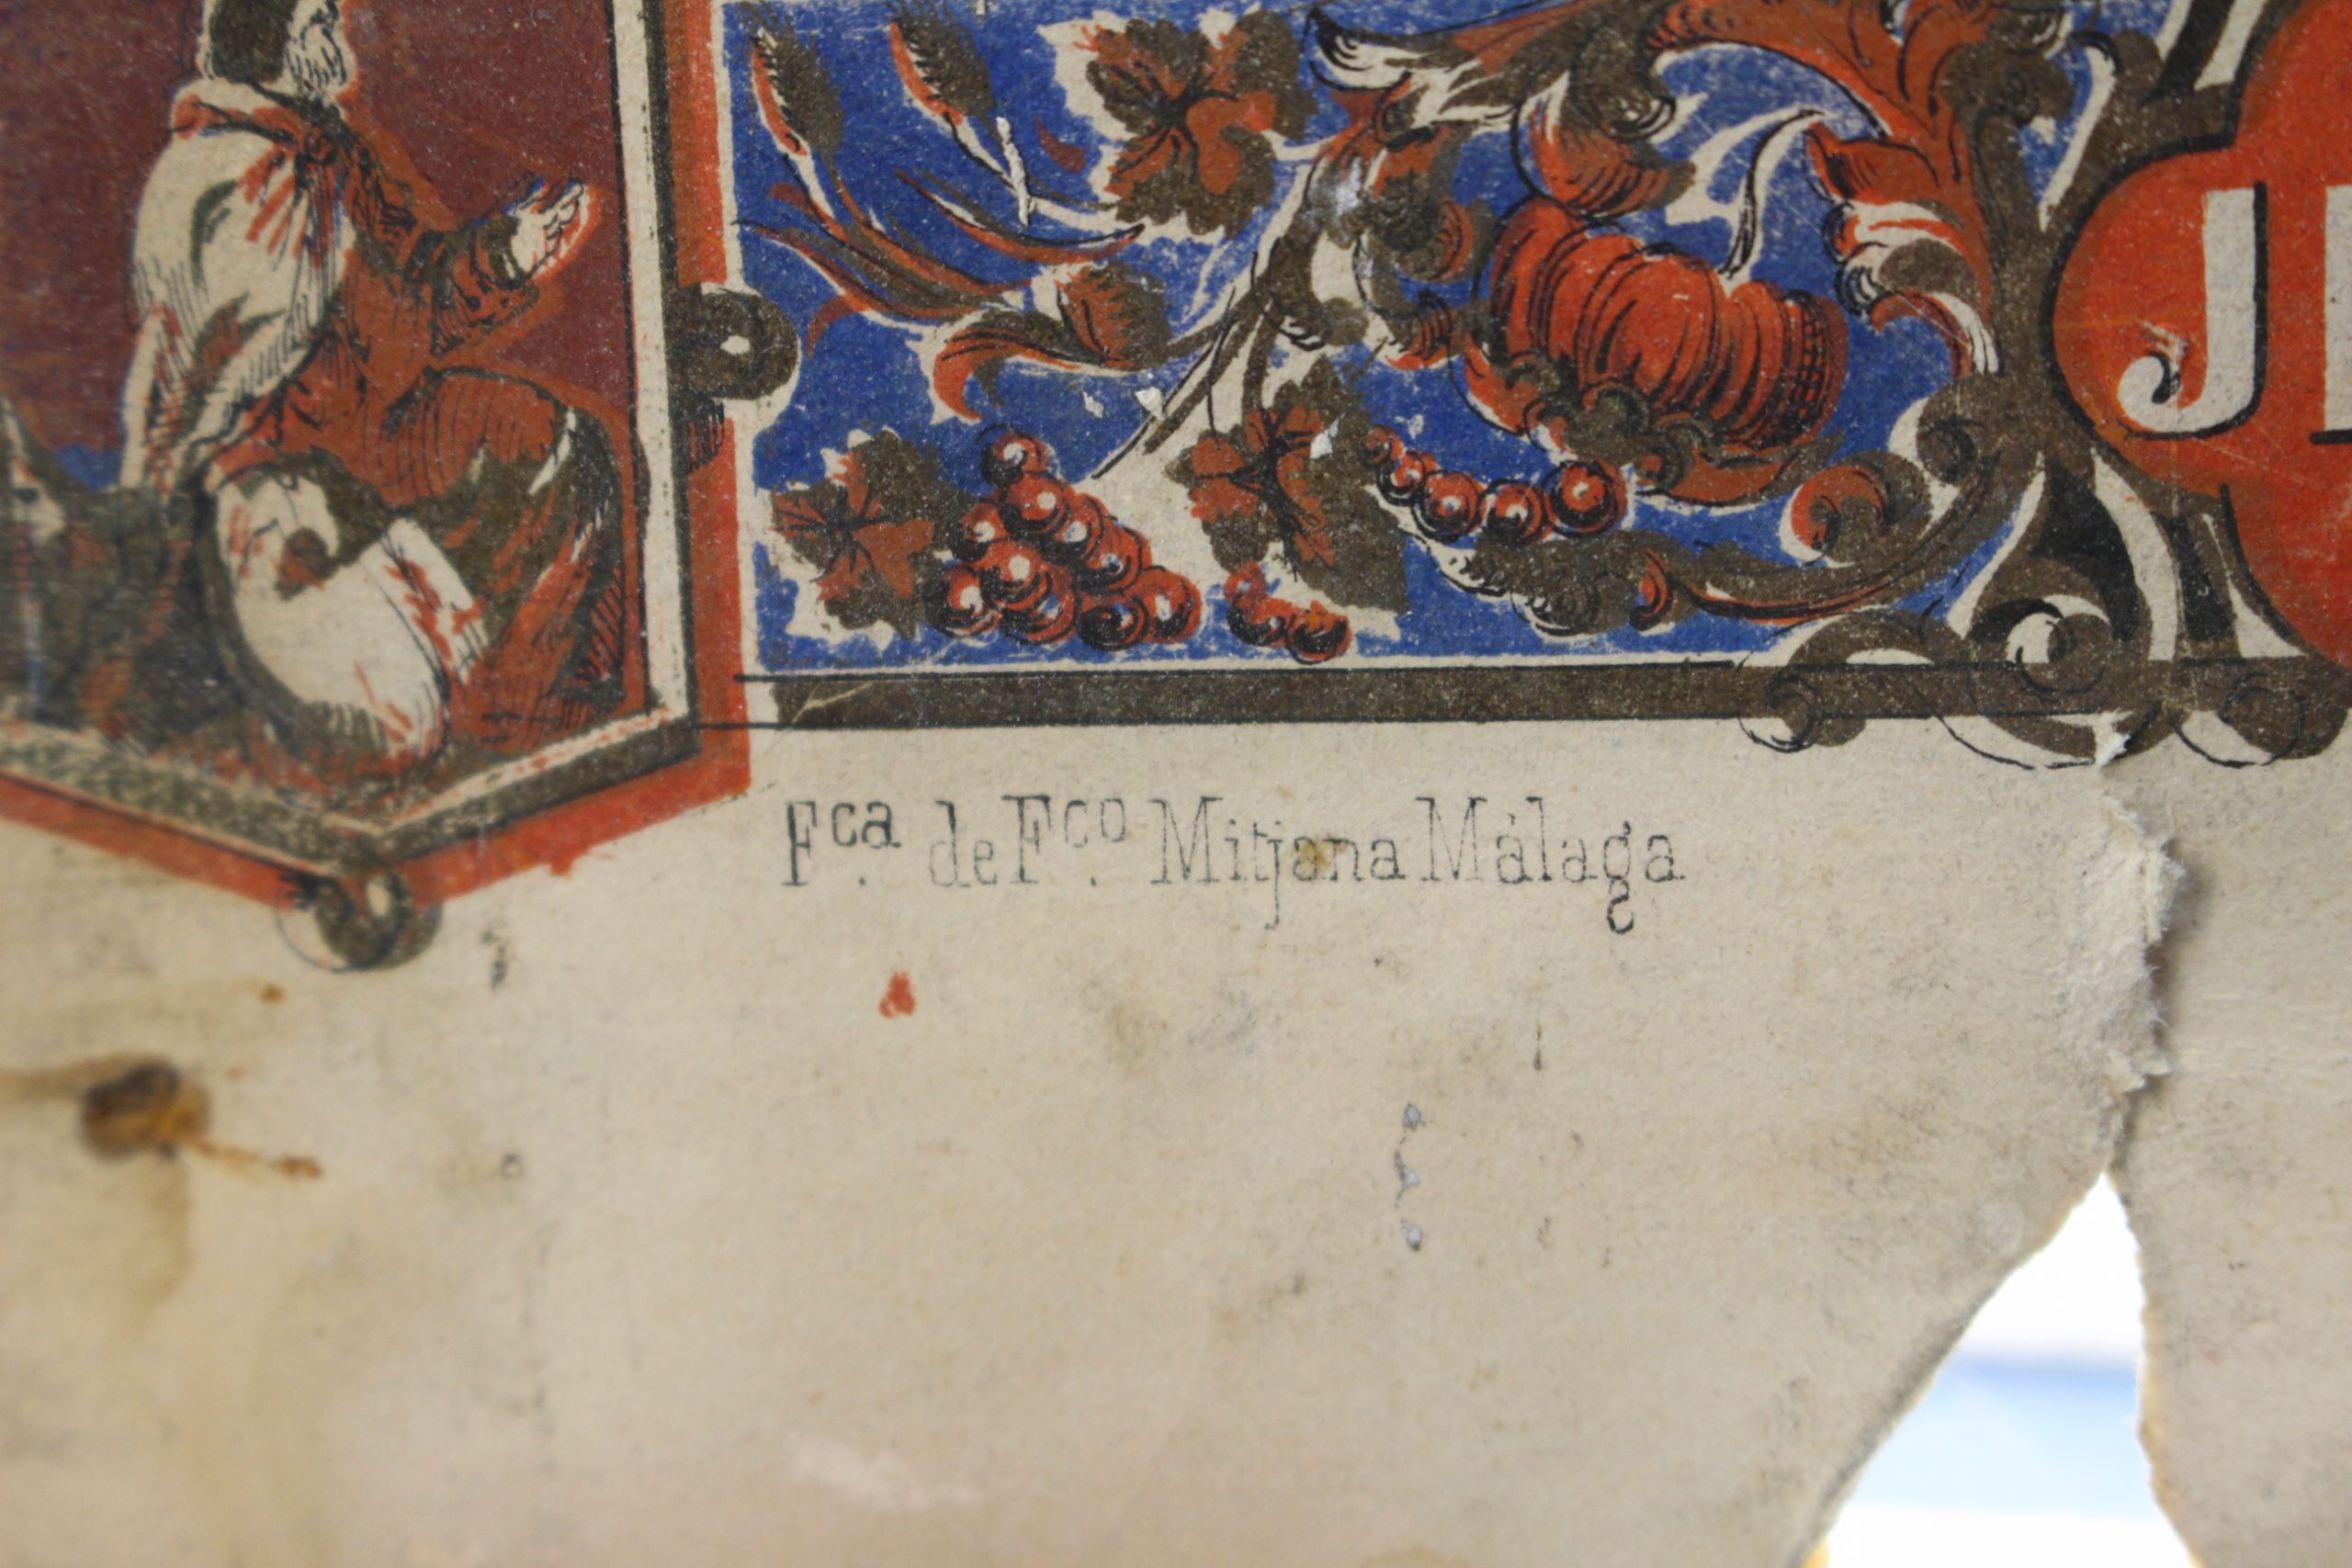 J
Fca. de Fco. Mitjana Màlaga